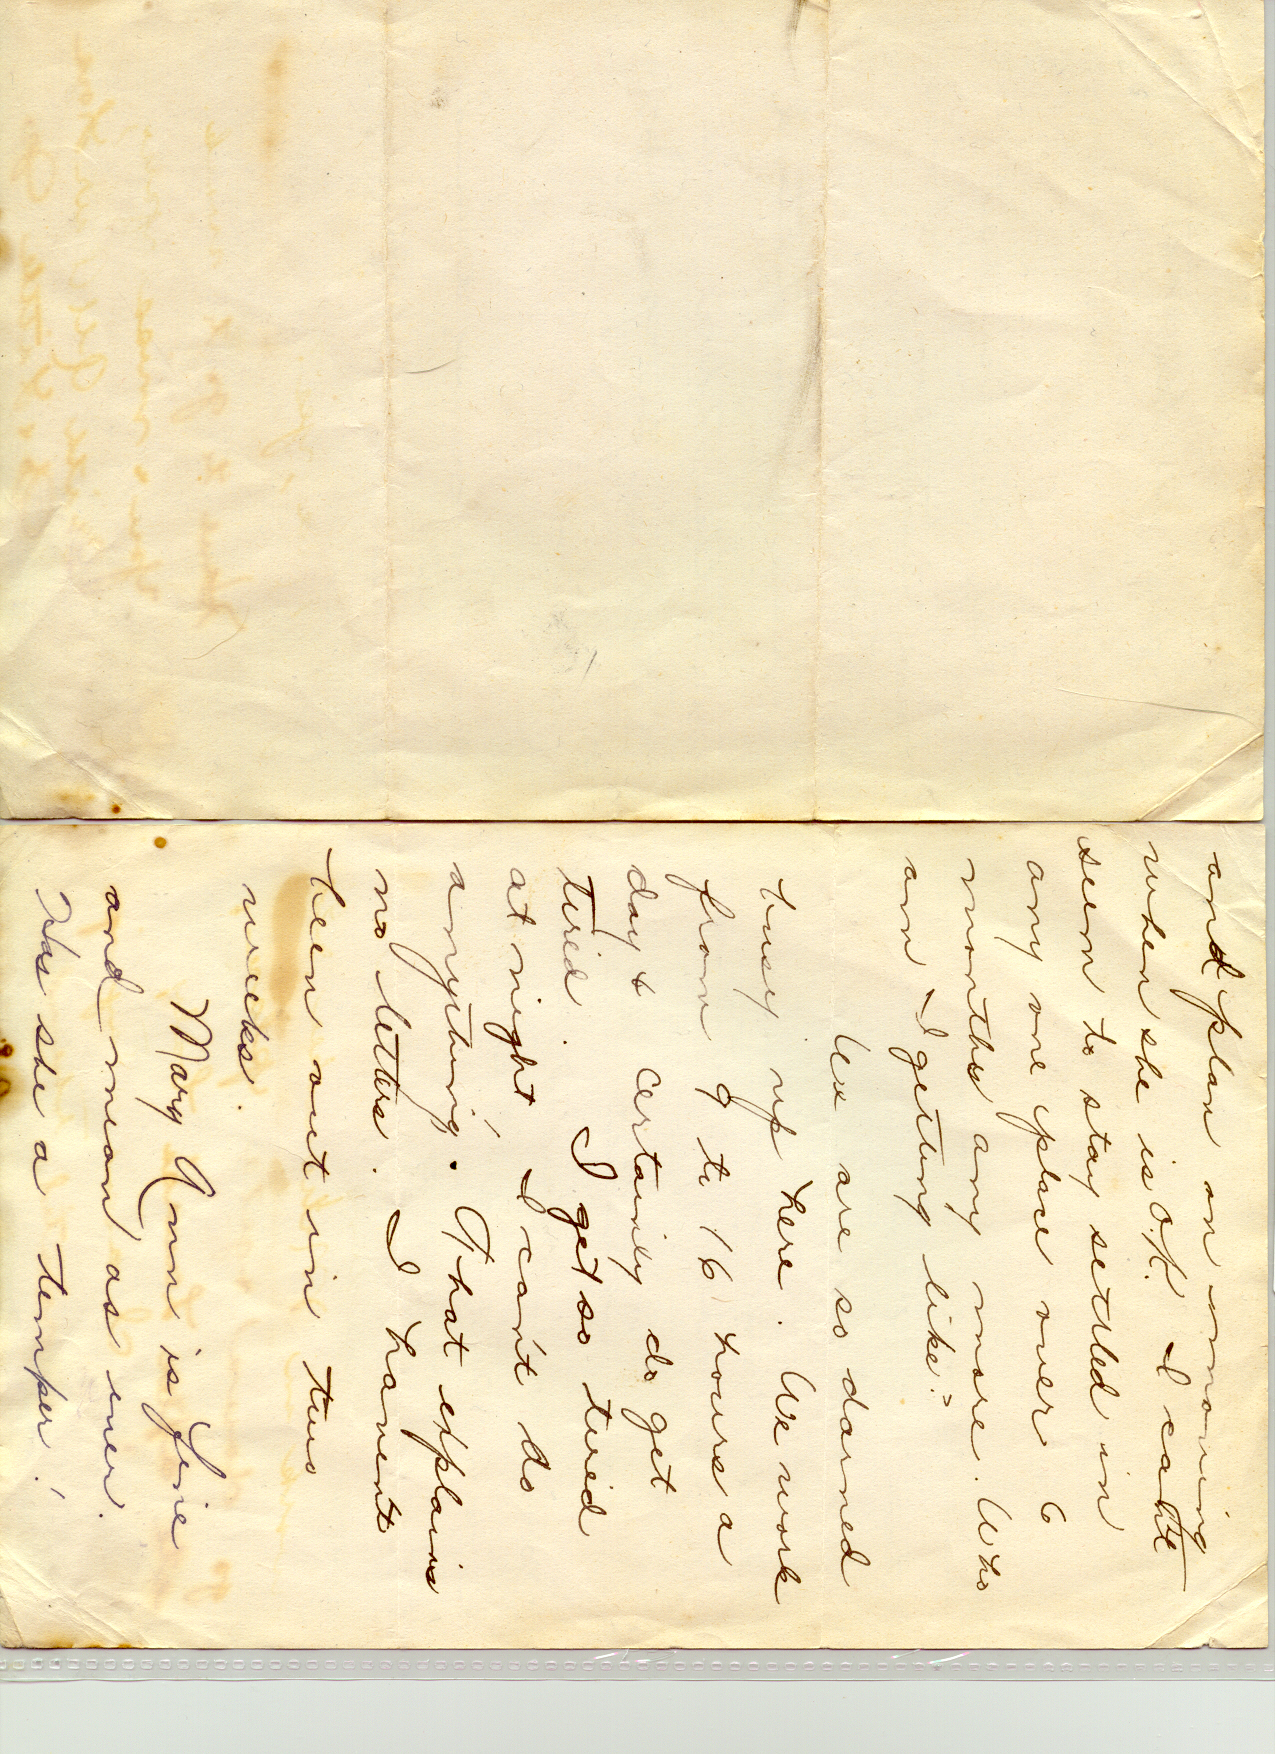 and plan on moving
when she is O.K. I can't
seem to stay settled in
any one place over 6
months any more. Who
am I getting like?
We are so darned
busy up here. We work
from 9 to 16 hours a
day & certainly do get
tired. I get so tired
at night I can't do
anything. That explains
no letters. I havent
been out in two
weeks.
Mary Ann is fine
and mean as ever.
Has she a temper!